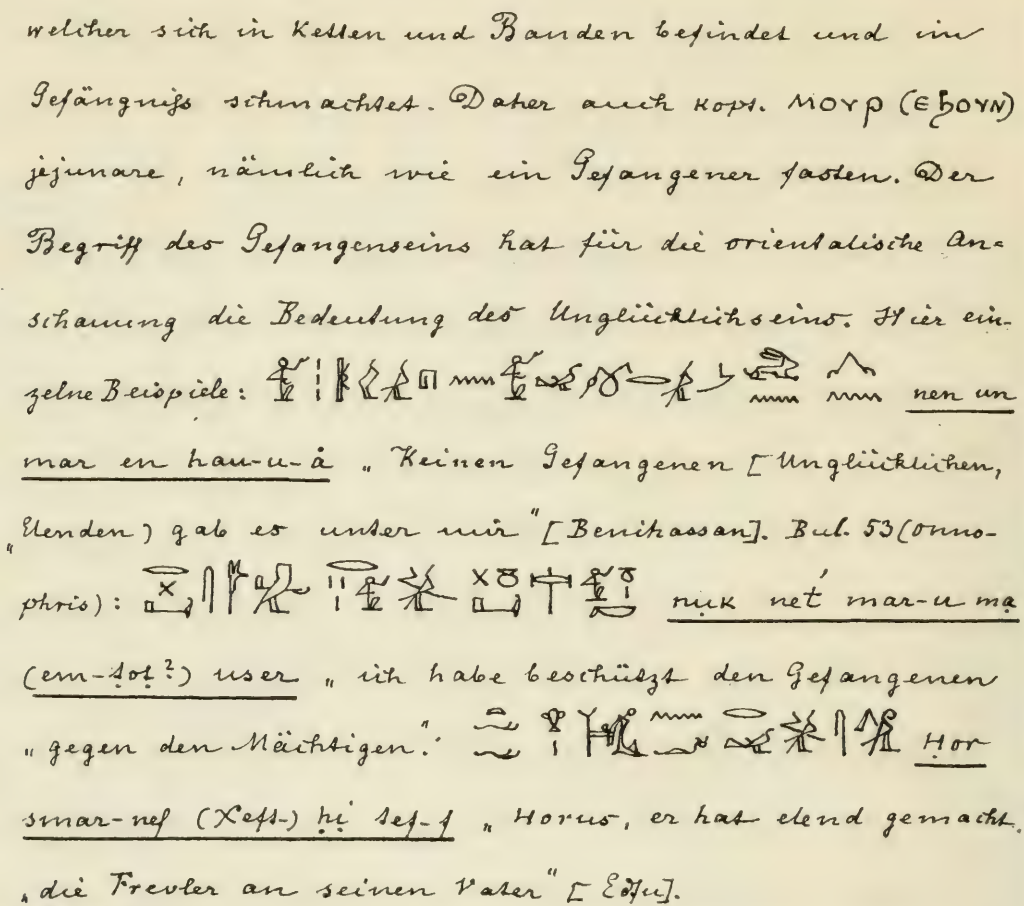 welcher sich in Ketten und Banden befindet und im
Gefängniss schmachtet. Daher auch kopt. ⲙⲟⲩⲣ (ⲉϧⲟⲩⲛ)
jejunare, nämlich wie ein Gefangener fasten. Der
Begriff des Gefangenseins hat für die orientalische An-
schauung die Bedeutung des Unglücklichseins. Hier ein-
zelne Beispiele: nen un
mar en hau-u-å „Keinen Gefangenen [Unglücklichen,
„Elenden) gab es unter mir" [Benihassan]. Bul. 53 (Onno-
phris): nuk net́ mar-u mạ
(em-ṭoṭ?) user „ich habe beschützt den Gefangenen
„gegen den Mächtigen." Ḥor
smar-nef (Xeft-) ḥi tef-f „Horus, er hat elend gemacht
„die Frevler an seinen Vater" [Edfu].